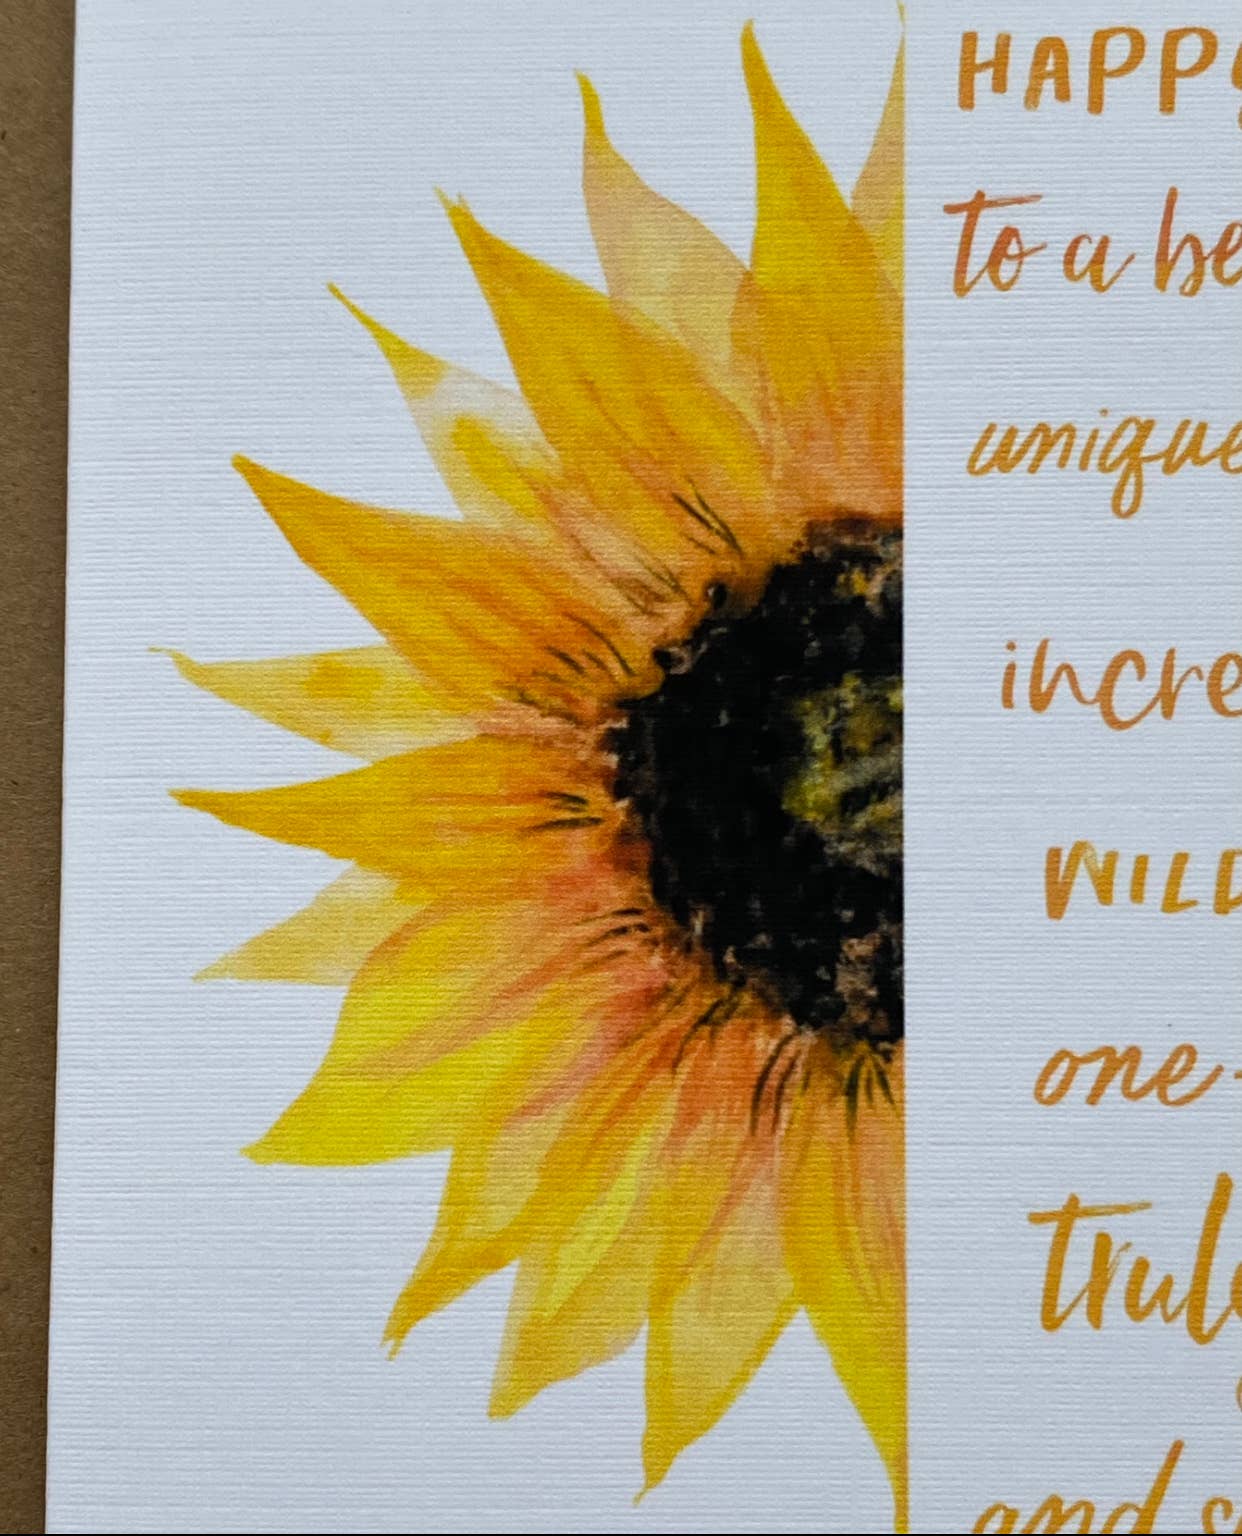 HAPPY
to a be
unique
incre
WILD
one-
truly
and s